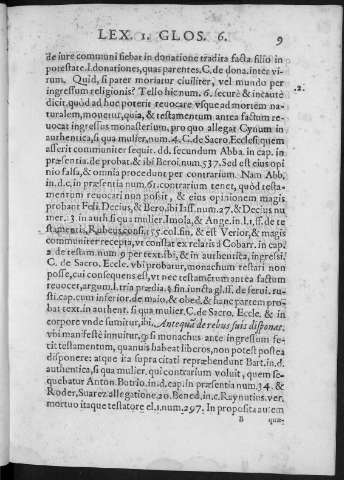 LEX. 1. GLOS. 6. 9
de iure communi fiebat in donatione tradita facta filio in
potestate. l. donationes, quas parentes. C. de dona. inter vi-
rum. Quid, si pater moriatur ciuiliter, vel mundo per
ingressum religionis? Tello hic num. 6. securè & incautè
.2.
dicit, quòd ad hoc poterit reuocare vsque ad mortem na-
turalem, mouetur, quia, & testamentum antea factum re-
uocat ingressus monasterium, pro quo allegat Cynum in
authentica, si qua mulier, num. 4. C. de Sacro. Eccles. quem
asserit communiter sequi. & d. secundum Abba. in cap. in
præsentia. de probat. & ibi Beroi. num. 537. Sed est eius opi
nio falsa, & omnia procedunt per contrarium. Nam Abb.
in. d. c. in præsentia num. 61. contrarium tenet, quòd testa-
mentum reuocari non possit, & eius opinionem magis
probant Feli. Decius, & Bero. ibi Iss. num. 27. & Decius nu
mer. 13. in auth. si qua mulier. Imola, & Ange. in l. 1. ff. de te
stamentis, Rubeus cons. 155. col. fin. & est Verior, & magis
communiter recepta, vt constat ex relatis à Cobarr. in cap.
2. de testam. num. 9. per text. ibi, & in authentica, ingressi.
C. de Sacro. Eccle. vbi probatur, monachum testari non
posse, cui consequens est, vt nec testamētum antea factum
reuocer, argum. l. tria prædia. §. fin. iuncta gl. ff. de serui. ru-
sti. cap. cum inferior. de maio. & obed. & hanc partem pro-
bat text. in authent. si qua mulier. C. de Sacro. Eccle. & in
corpore vnde sumitur, ibi. Antequā de rebus suis disponat.
vbi manifestè innuitur, q si monachus ante ingressum fe-
cit testamentum, quanuis habeat liberos, non potest postea
disponere: atque ita supra citati repræhendunt Bart. in. d.
authentica, si qua mulier. qui contrarium voluit, quem se-
quebatur Anton. Botrio. in. d. cap. in præsentia num. 34. &
Roder. Suarez allegatione. 20. Bened. in c. Raynutius. ver.
mortuo itaque testatore el. 1. num. 297. In proposita autem
B quæ-